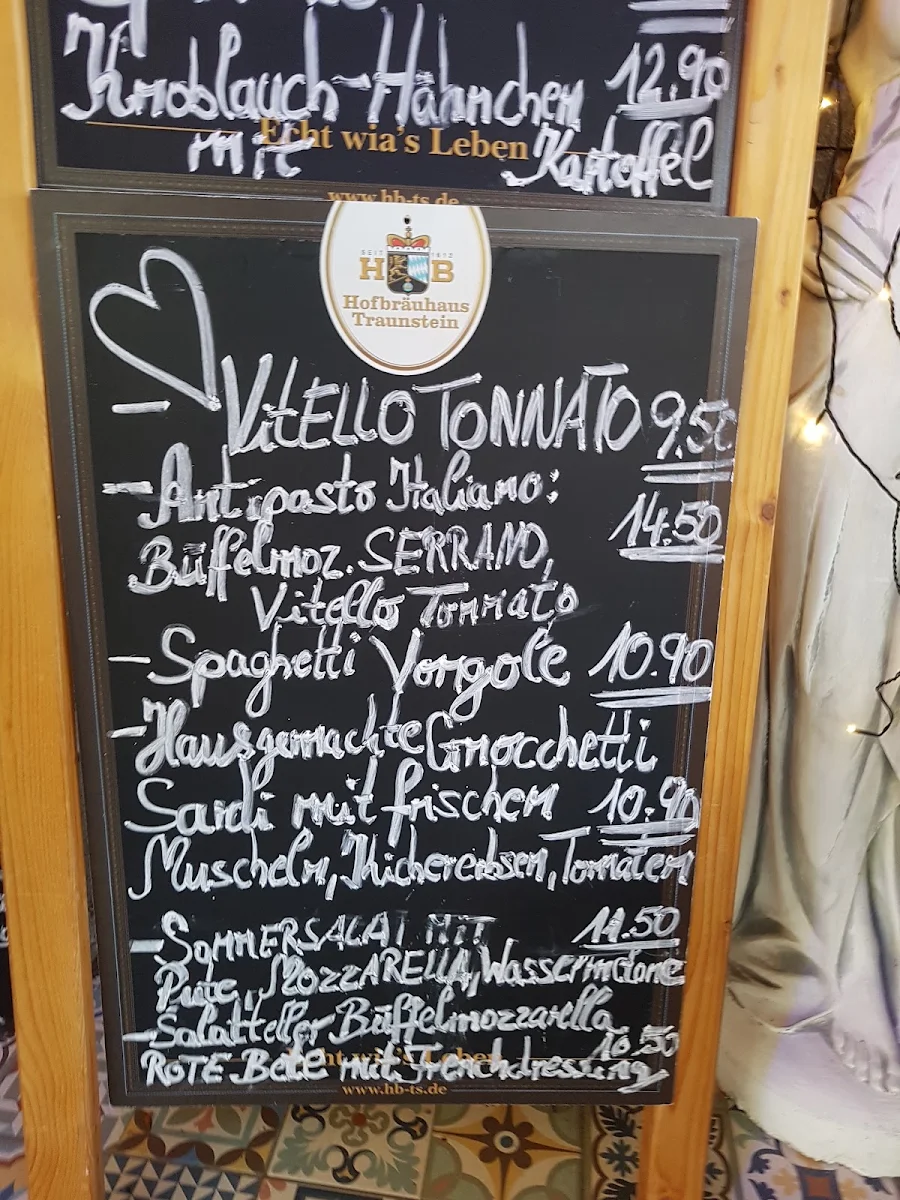 Knoblauch-Hähnchen 12.90
Echt wia's Leben
mit Kartoffel
www.hb-ts.de
SEIT 1612
H B
Hofbräuhaus
Traunstein
- VitELLO TONNATO 9,50
- Antipasto Italiano:
14.50
Büffelmoz. SERRANO,
Vitello Tonnato
- Spaghetti Vongole 10.90
- Hausgemachte Gnocchetti
Sardi mit frischen 10.90
Muscheln, Kichererbsen, Tomaten
- SOMMERSALAT MIT 11.50
Pute, MOZZARELLA, Wassermelone
- Salatteller Büffelmozzarella
10.50
Echt wia's Leben
ROTE-Bete mit Frenchdressing
www.hb-ts.de